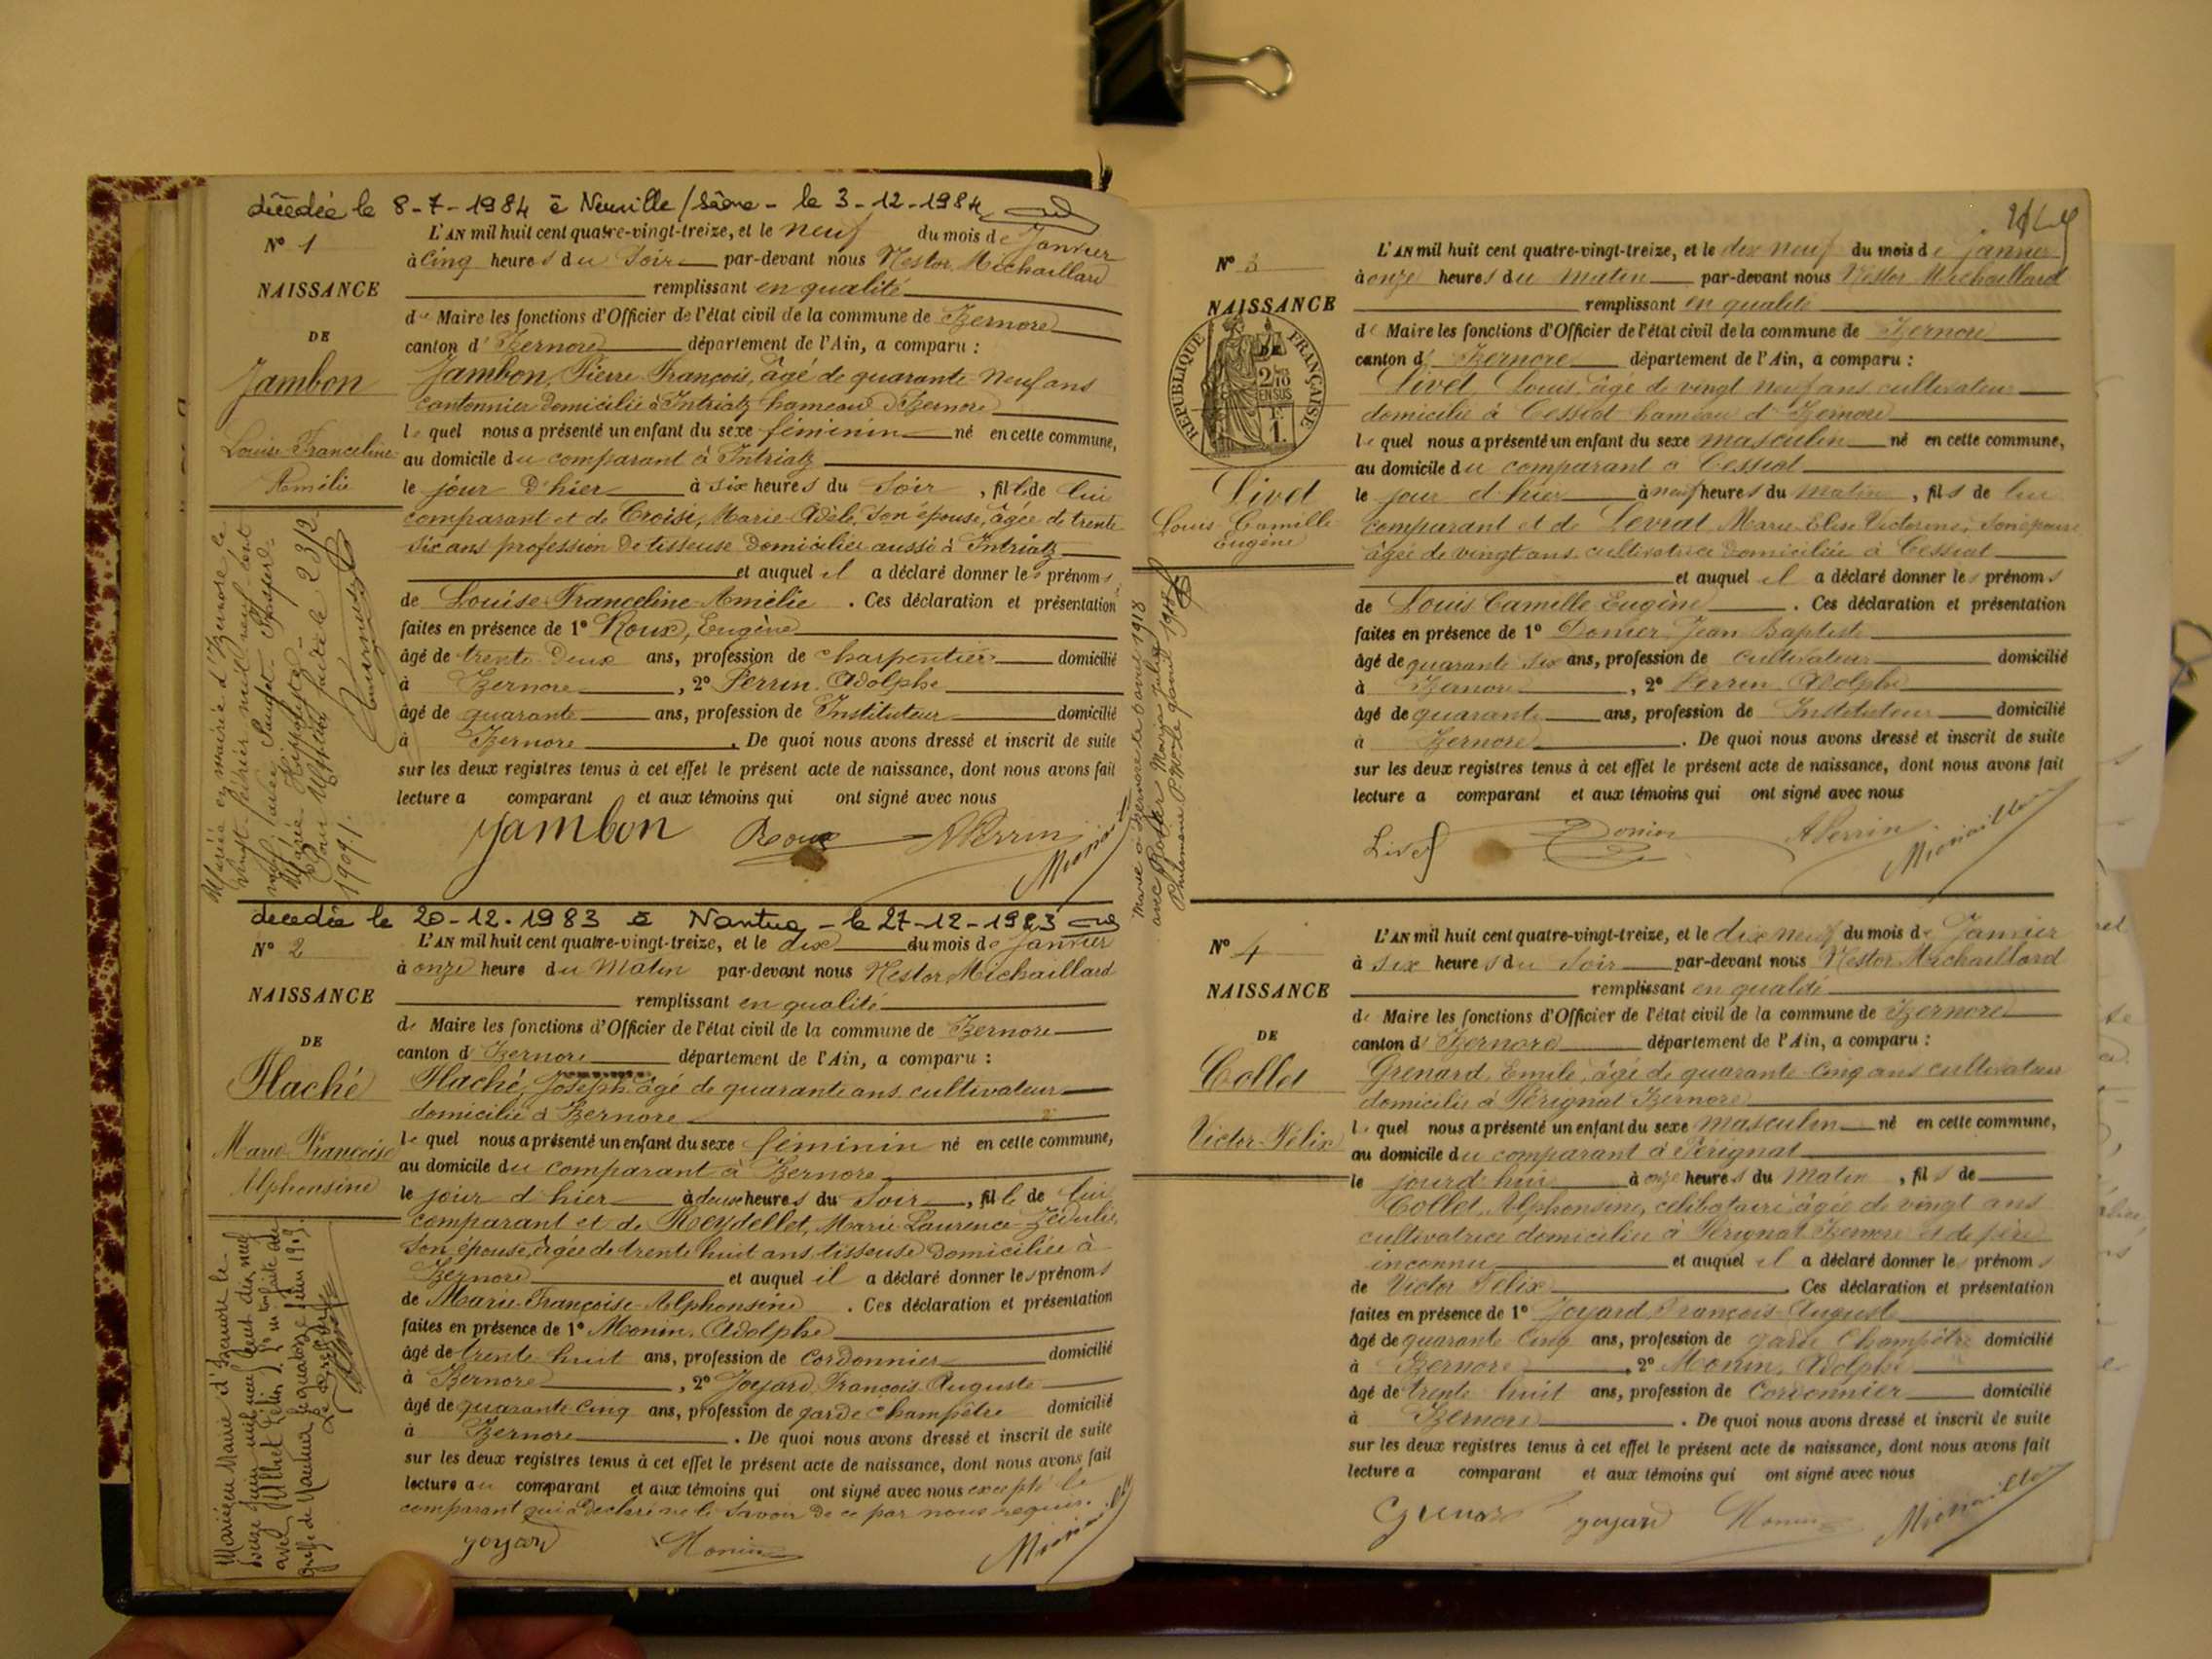 décédée le 8-7-1984 à Neuville/Saône - le 3-12-1984
N° 1
NAISSANCE
DE
Jambon
Louise Franceline
Amélie
L'AN mil huit cent quatre-vingt-treize, et le neuf du mois de Janvier
à cinq heures du Soir par-devant nous Nestor Michaillard
remplissant en qualité
de Maire les fonctions d'Officier de l'état civil de la commune de Izernore
canton d'Izernore département de l'Ain, a comparu :
Jambon, Pierre François, âgé de quarante-neuf ans
cantonnier domicilié à Intriatz hameau d'Izernore
lequel nous a présenté un enfant du sexe féminin né en cette commune,
au domicile du comparant à Intriatz
le jour d'hier à six heures du Soir, fille de lui
comparant et de Croisi, Marie Adèle, son épouse, âgée de trente
six ans profession de tisseuse domiciliée aussi à Intriatz
et auquel il a déclaré donner les prénoms
de Louise Franceline Amélie. Ces déclaration et présentation
faites en présence de 1° Roux, Eugène
âgé de trente-deux ans, profession de charpentier domicilié
à Izernore, 2° Perrin Adolphe
âgé de quarante ans, profession de Instituteur domicilié
à Izernore. De quoi nous avons dressé et inscrit de suite
sur les deux registres tenus à cet effet le présent acte de naissance, dont nous avons fait
lecture a comparant et aux témoins qui ont signé avec nous
Jambon Roux APerrin
Mariée en mairie d'Izernore le
vingt février mil neuf cent
neuf avec
Marie Hippolyte
1909
décédée le 20-12-1983 à Nantua - le 27-12-1983
N° 2
NAISSANCE
DE
Flaché
Marie Françoise
Alphonsine
L'AN mil huit cent quatre-vingt-treize, et le dix du mois de Janvier
à onze heure du Matin par-devant nous Nestor Michaillard
remplissant en qualité
de Maire les fonctions d'Officier de l'état civil de la commune de Izernore
canton d'Izernore département de l'Ain, a comparu :
Flaché, Joseph âgé de quarante ans cultivateur
domicilié à Izernore
lequel nous a présenté un enfant du sexe féminin né en cette commune,
au domicile du comparant à Izernore
le jour d'hier à deux heures du Soir, fille de lui
comparant et de Reydellet, Marie Laurence Zédulie,
son épouse, âgée de trente huit ans tisseuse domiciliée à
Izernore et auquel il a déclaré donner les prénoms
de Marie Françoise Alphonsine. Ces déclaration et présentation
faites en présence de 1° Monin, Adolphe
âgé de trente huit ans, profession de cordonnier domicilié
à Izernore, 2° Joyard, François Auguste
âgé de quarante-cinq ans, profession de garde champêtre domicilié
à Izernore. De quoi nous avons dressé et inscrit de suite
sur les deux registres tenus à cet effet le présent acte de naissance, dont nous avons fait
lecture au comparant et aux témoins qui ont signé avec nous excepté le
comparant qui a déclaré ne le savoir de ce par nous requis.
Joyard Monin
Mariée en Mairie d'Izernore le
treize juin mil neuf cent dix neuf
avec
N° 3
NAISSANCE
RÉPUBLIQUE FRANÇAISE
2/10
EN SUS
1F.
Livet
Louis Camille
Eugène
L'AN mil huit cent quatre-vingt-treize, et le dix neuf du mois de janvier
à onze heures du matin par-devant nous Nestor Michaillard
remplissant en qualité
de Maire les fonctions d'Officier de l'état civil de la commune de Izernore
canton d'Izernore département de l'Ain, a comparu :
Livet, Louis, âgé de vingt neuf ans cultivateur
domicilié à Cessiat hameau d'Izernore
lequel nous a présenté un enfant du sexe masculin né en cette commune,
au domicile du comparant à Cessiat
le jour d'hier à neuf heures du Matin, fils de lui
comparant et de Levrat Marie Elise Victorine, son épouse
âgée de vingt ans cultivatrice domiciliée à Cessiat
et auquel il a déclaré donner les prénoms
de Louis Camille Eugène. Ces déclaration et présentation
faites en présence de 1° Donier Jean Baptiste
âgé de quarante six ans, profession de cultivateur domicilié
à Izernore, 2° Perrin Adolphe
âgé de quarante ans, profession de Instituteur domicilié
à Izernore. De quoi nous avons dressé et inscrit de suite
sur les deux registres tenus à cet effet le présent acte de naissance, dont nous avons fait
lecture a comparant et aux témoins qui ont signé avec nous
Livet Donier APerrin
Marié à Izernore le 6 avril 1918
N° 4
NAISSANCE
DE
Collet
Victor Félix
L'AN mil huit cent quatre-vingt-treize, et le dix neuf du mois de Janvier
à six heures du Soir par-devant nous Nestor Michaillard
remplissant en qualité
de Maire les fonctions d'Officier de l'état civil de la commune de Izernore
canton d'Izernore département de l'Ain, a comparu :
Grenard, Emile, âgé de quarante-cinq ans cultivateur
domicilié à Pérignat Izernore
lequel nous a présenté un enfant du sexe masculin né en cette commune,
au domicile du comparant à Pérignat
le jourd'hui à onze heures du Matin, fils de
Collet, Alphonsine, célibataire, âgée de vingt ans
cultivatrice domiciliée à Pérignat Izernore et de père
inconnu et auquel il a déclaré donner les prénoms
de Victor Félix. Ces déclaration et présentation
faites en présence de 1° Joyard, François August
âgé de quarante cinq ans, profession de garde champêtre domicilié
à Izernore, 2° Monin, Adolphe
âgé de trente huit ans, profession de cordonnier domicilié
à Izernore. De quoi nous avons dressé et inscrit de suite
sur les deux registres tenus à cet effet le présent acte de naissance, dont nous avons fait
lecture a comparant et aux témoins qui ont signé avec nous
Joyard Monin